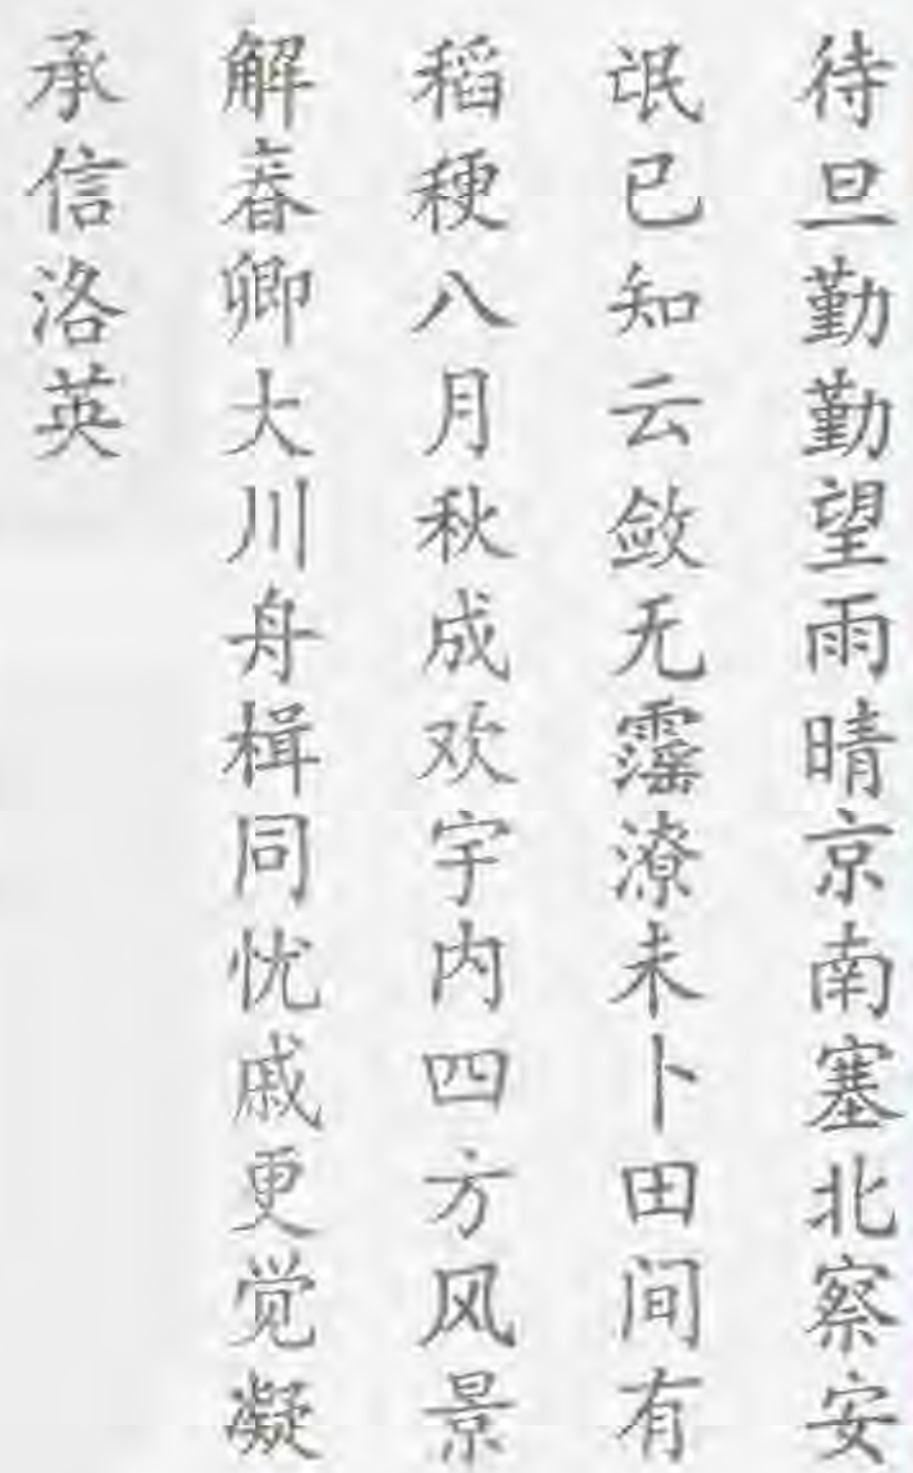 待旦勤勤望雨晴京南塞北察安
氓已知云敛无霪潦未卜田间有
稻稉八月秋成欢宇内四方风景
解春卿大川舟楫同忧戚更觉凝
承信洛英